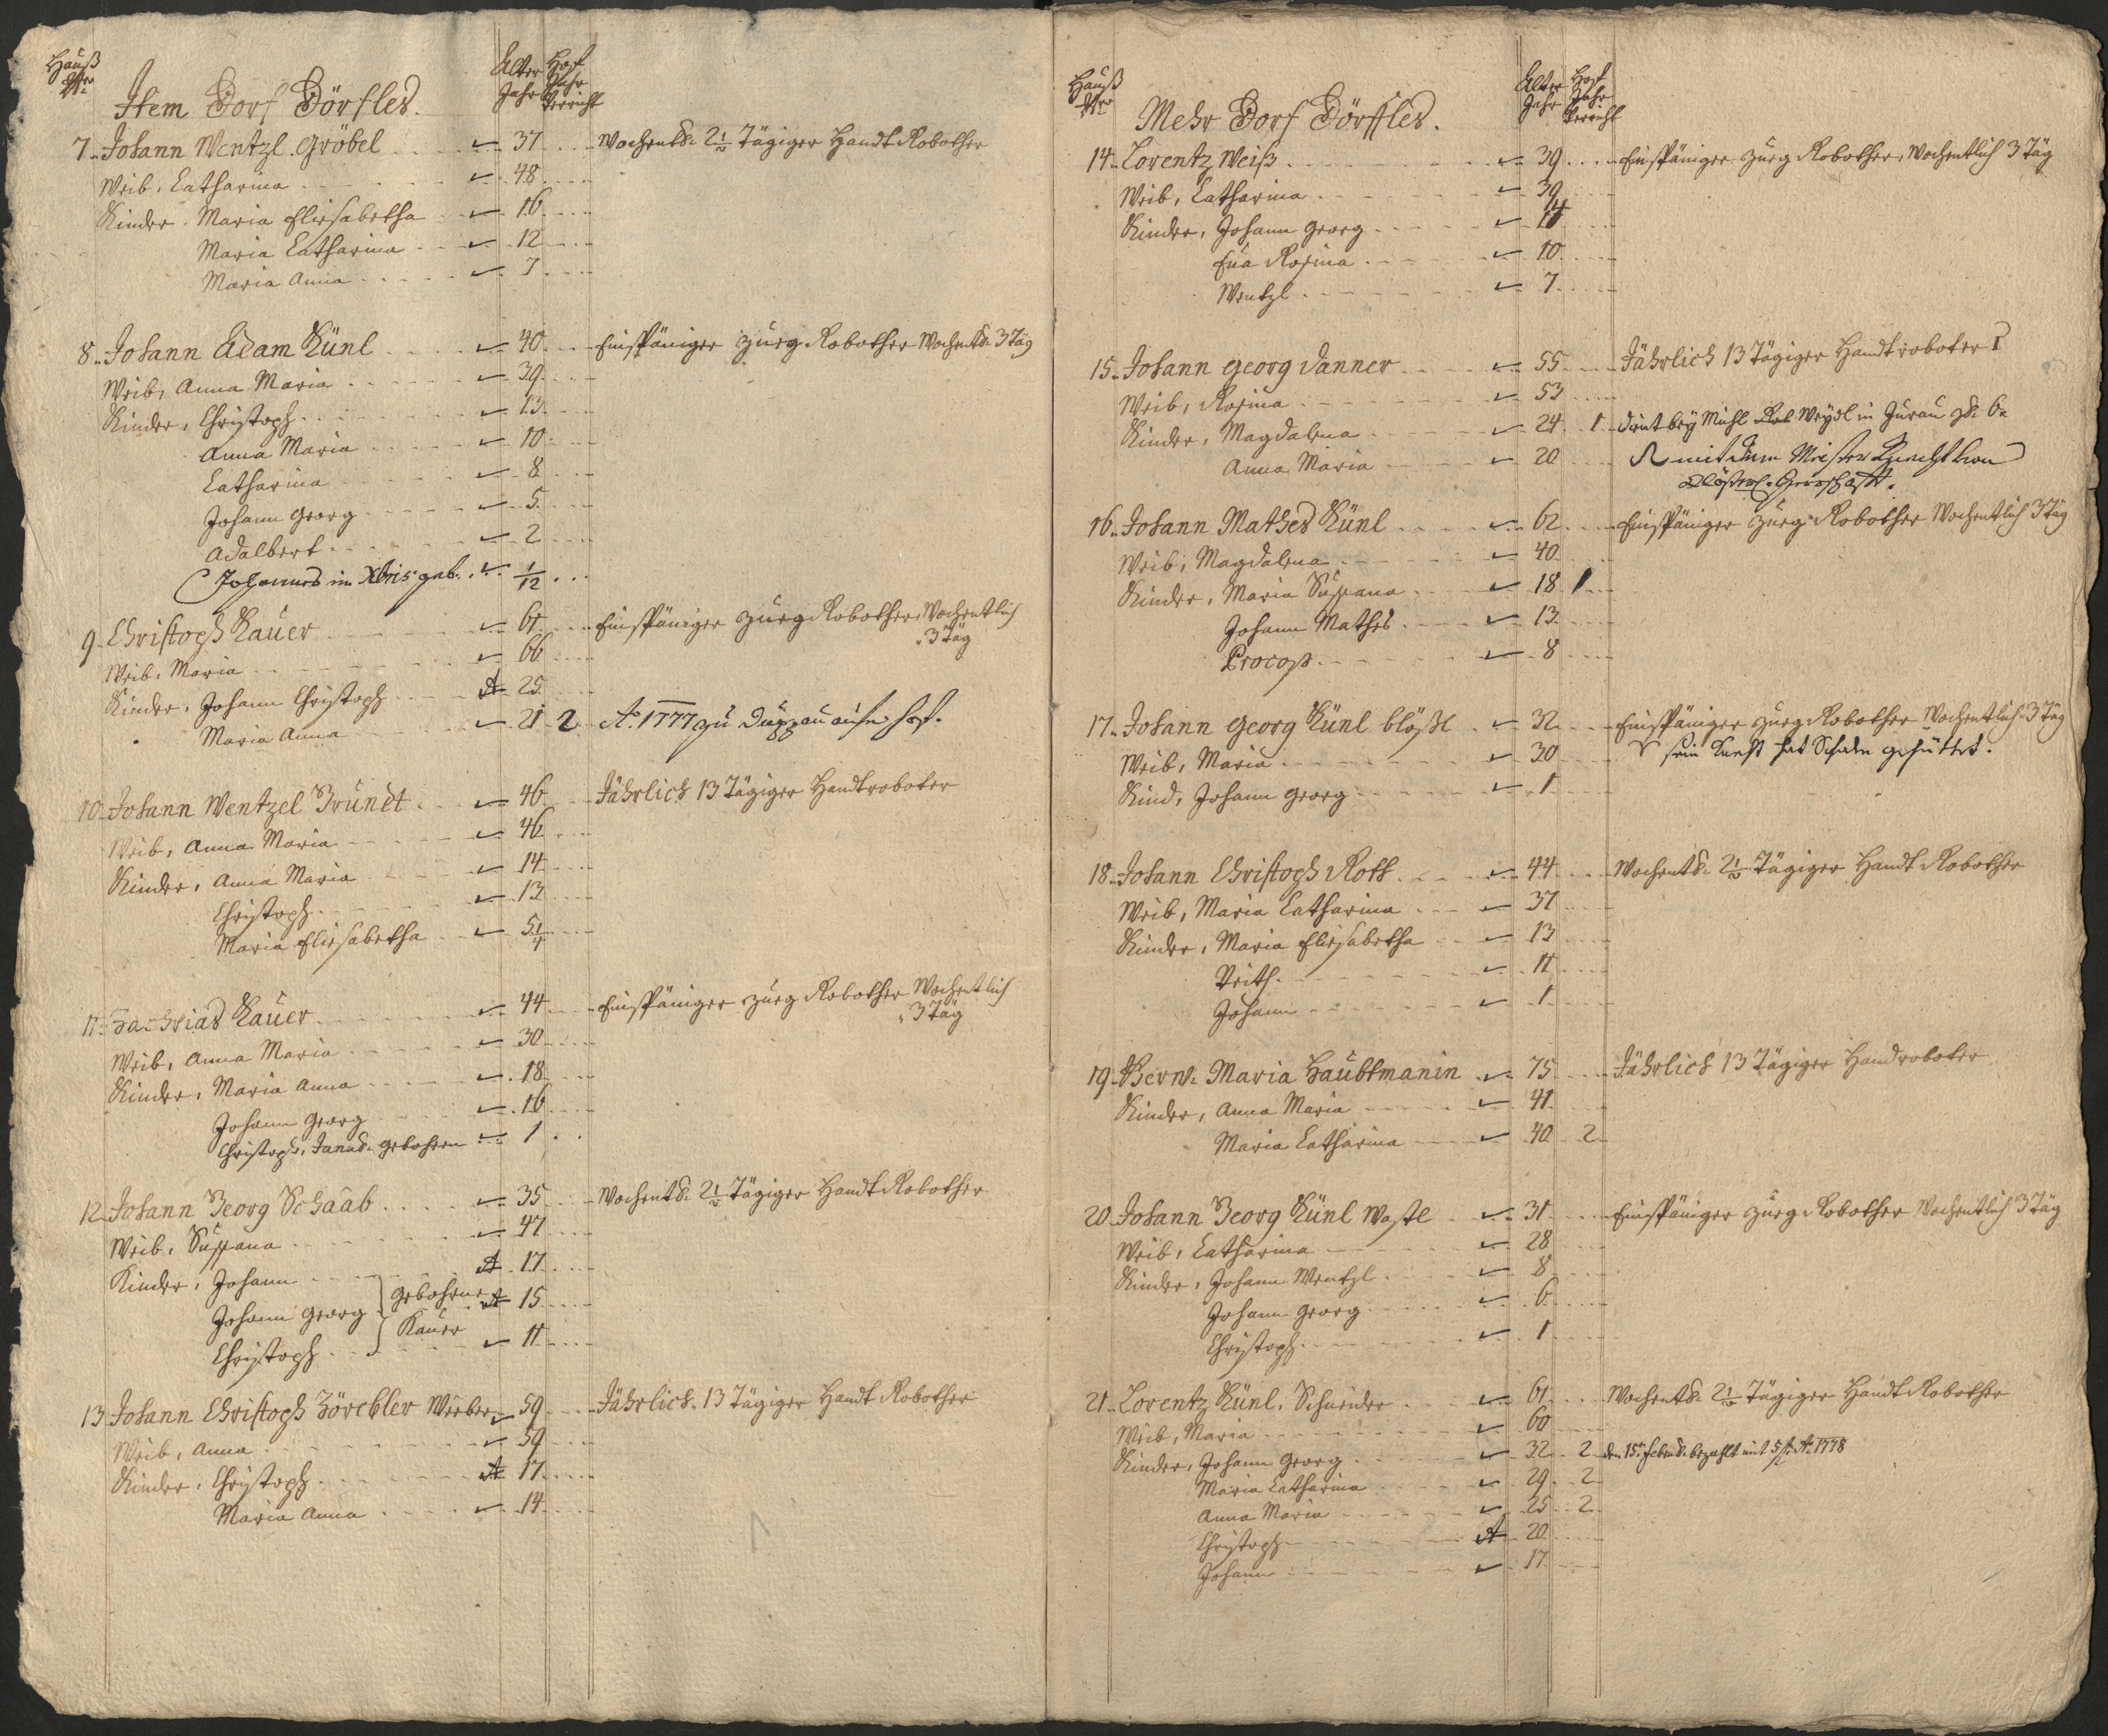 Hauß Nro
Alter Jahr
Hof Jahr Verricht
Item Dorf Dörfles.
7. Johann Wentzl Gröbel 37 Wochentl. 2 1/2 Tägiger Handt Robother
Weib, Catharina 48
Kinder, Maria Elisabetha 16
Maria Catharina 12
Maria Anna 7
8. Johann Adam Künl 40 Einspäniger Zueg Robother Wochentl. 3 Täg
Weib, Anna Maria 39
Kinder, Christoph 13
Anna Maria 10
Catharina 8
Johann Georg 5
Adalbert 2
Johannes im Xbris geb. 1/12
9. Christoph Kauer 61 Einspäniger Zueg Robother Wochentlich
3 Täg
Weib, Maria 66
Kinder, Johann Christoph A 25
Maria Anna 21 2 Ao. 1777 zu Duppau aufn Hof.
10. Johann Wentzel Brundt 46 Jährlich 13 Tägiger Handtroboter
Weib, Anna Maria 46
Kinder, Anna Maria 14
Christoph 13
Maria Elisabetha 5 1/4
11. Zachrias Kauer 44 Einspäniger Zueg Robother Wochentlich
3 Täg
Weib, Anna Maria 30
Kinder, Maria Anna 18
Johann Georg 16
Christoph, Januar. gebohren 1
12. Johann Georg Schaab 35 Wochentl. 2 1/2 Tägiger Handt Robother
Weib, Susana 47
Kinder, Johann A 17
Johann Georg gebohrne A 15
Kauer
Christoph 11
13. Johann Christoph Weeber 59 Jährlich 13 Tägiger Handt Robother
Weib, Anna 59
Kinder, Christoph A 17
Maria Anna 14
Hauß Nro
Alter Jahr
Hof Jahr Verricht
Mehr Dorf Dörffles.
14. Lorentz Weiß 39 Einspäniger Zueg Robother, Wochentlich 3 Täg
Weib, Catharina 39
Kinder, Johann Georg 14
Eva Rosina 10
Wentzl 7
15. Johann Georg Danner 55 Jährlich 13 Tägiger Handtroboter
Weib, Rosina 53
Kinder, Magdalena 24 1 dint bey Michl Weydl in
Anna Maria 20 mit dem Meister Knecht von
Herrschafft.
16. Johann Mathes Künl 62 Einspäniger Zueg Robother Wochentlich 3 Täg
Weib, Magdalena 40
Kinder, Maria Susana 18 1
Johann Mathes 13
Procop 8
17. Johann Georg Künl blößl 32 Einspäniger Zueg Robother Wochentlich 3 Täg
Weib, Maria 30 sein Knecht hat Schaden gefüttert.
Kind, Johann Georg 1
18. Johann Christoph Roth 44 Wochentl. 2 1/2 Tägiger Handt Robother
Weib, Maria Catharina 37
Kinder, Maria Elisabetha 13
Veith 11
Johann 1
19. Maria Haubtmanin 75 Jährlich 13 Tägiger Handroboter
Kinder, Anna Maria 41
Maria Catharina 40 2
20. Johann Georg Künl Wastl 31 Einspäniger Zueg Robother Wochentlich 3 Täg
Weib, Catharina 28
Kinder, Johann Wentzl 8
Johann Georg 6
Christoph 1
21. Lorentz Künl, Schneider 61 Wochentl. 2 1/2 Tägiger Handt Robother
Weib, Maria 60
Kinder, Johann Georg 32 2 den 15t. Febru. bezahlt mit 5 f. Ao. 1778
Maria Catharina 29 2
Anna Maria 25 2
Christoph A 20
Johann 17